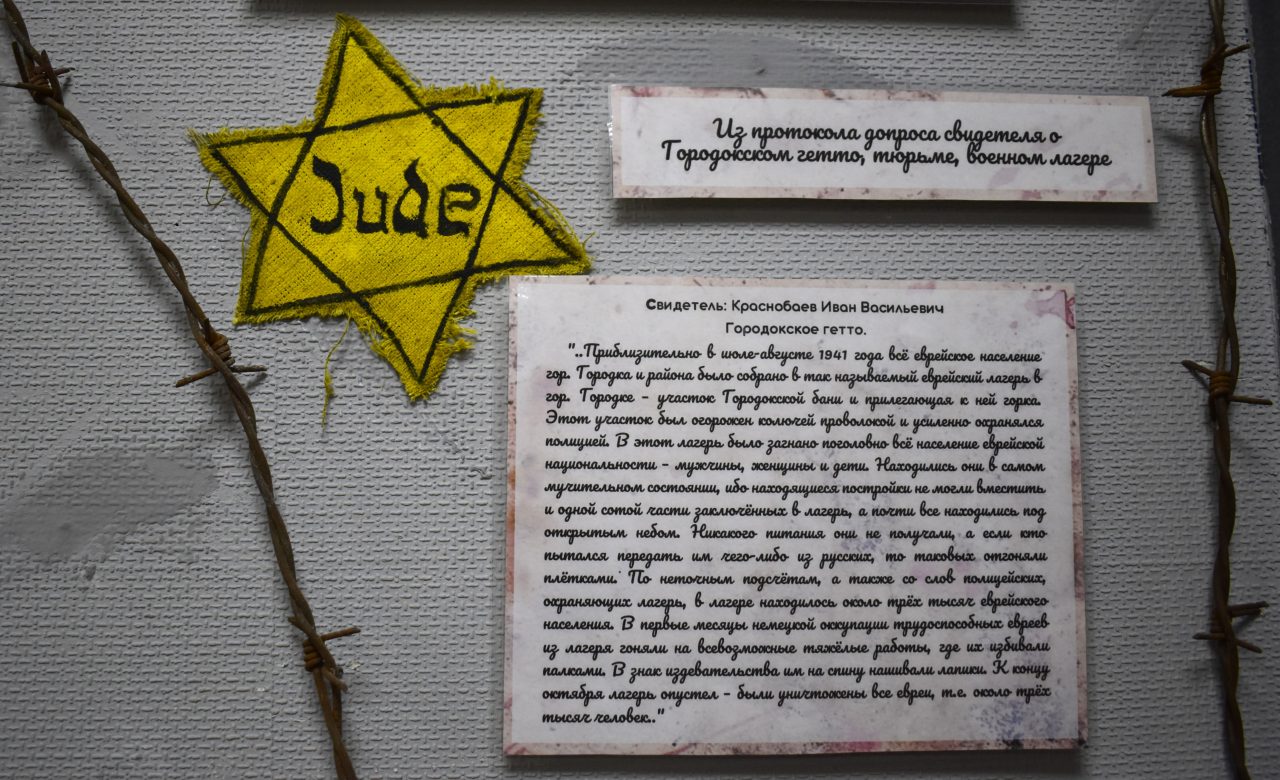 Jude
Из протокола допроса свидетеля о
Городокском гетто, тюрьме, военном лагере
Свидетель: Краснобаев Иван Васильевич
Городокское гетто.
"..Приблизительно в июле-августе 1941 года всё еврейское население
гор. Городка и района было собрано в так называемый еврейский лагерь в
гор. Городке – участок Городокской бани и прилегающая к ней горка.
Этот участок был огорожен колючей проволокой и усиленно охранялся
полицией. В этот лагерь было загнано поголовно всё население еврейской
национальности – мужчины, женщины и дети. Находились они в самом
мучительном состоянии, ибо находящиеся постройки не могли вместить
и одной сотой части заключённых в лагерь, а почти все находились под
открытым небом. Никакого питания они не получали, а если кто
пытался передать им чего-либо из русских, то таковых отгоняли
плётками. По неточным подсчётам, а также со слов полицейских,
охраняющих лагерь, в лагере находилось около трёх тысяч еврейского
населения. В первые месяцы немецкой оккупации трудоспособных евреев
из лагеря гоняли на всевозможные тяжёлые работы, где их избивали
палками. В знак издевательства им на спину нашивали латики. К концу
октября лагерь опустел – были уничтожены все евреи, т.е. около трёх
тысяч человек.."